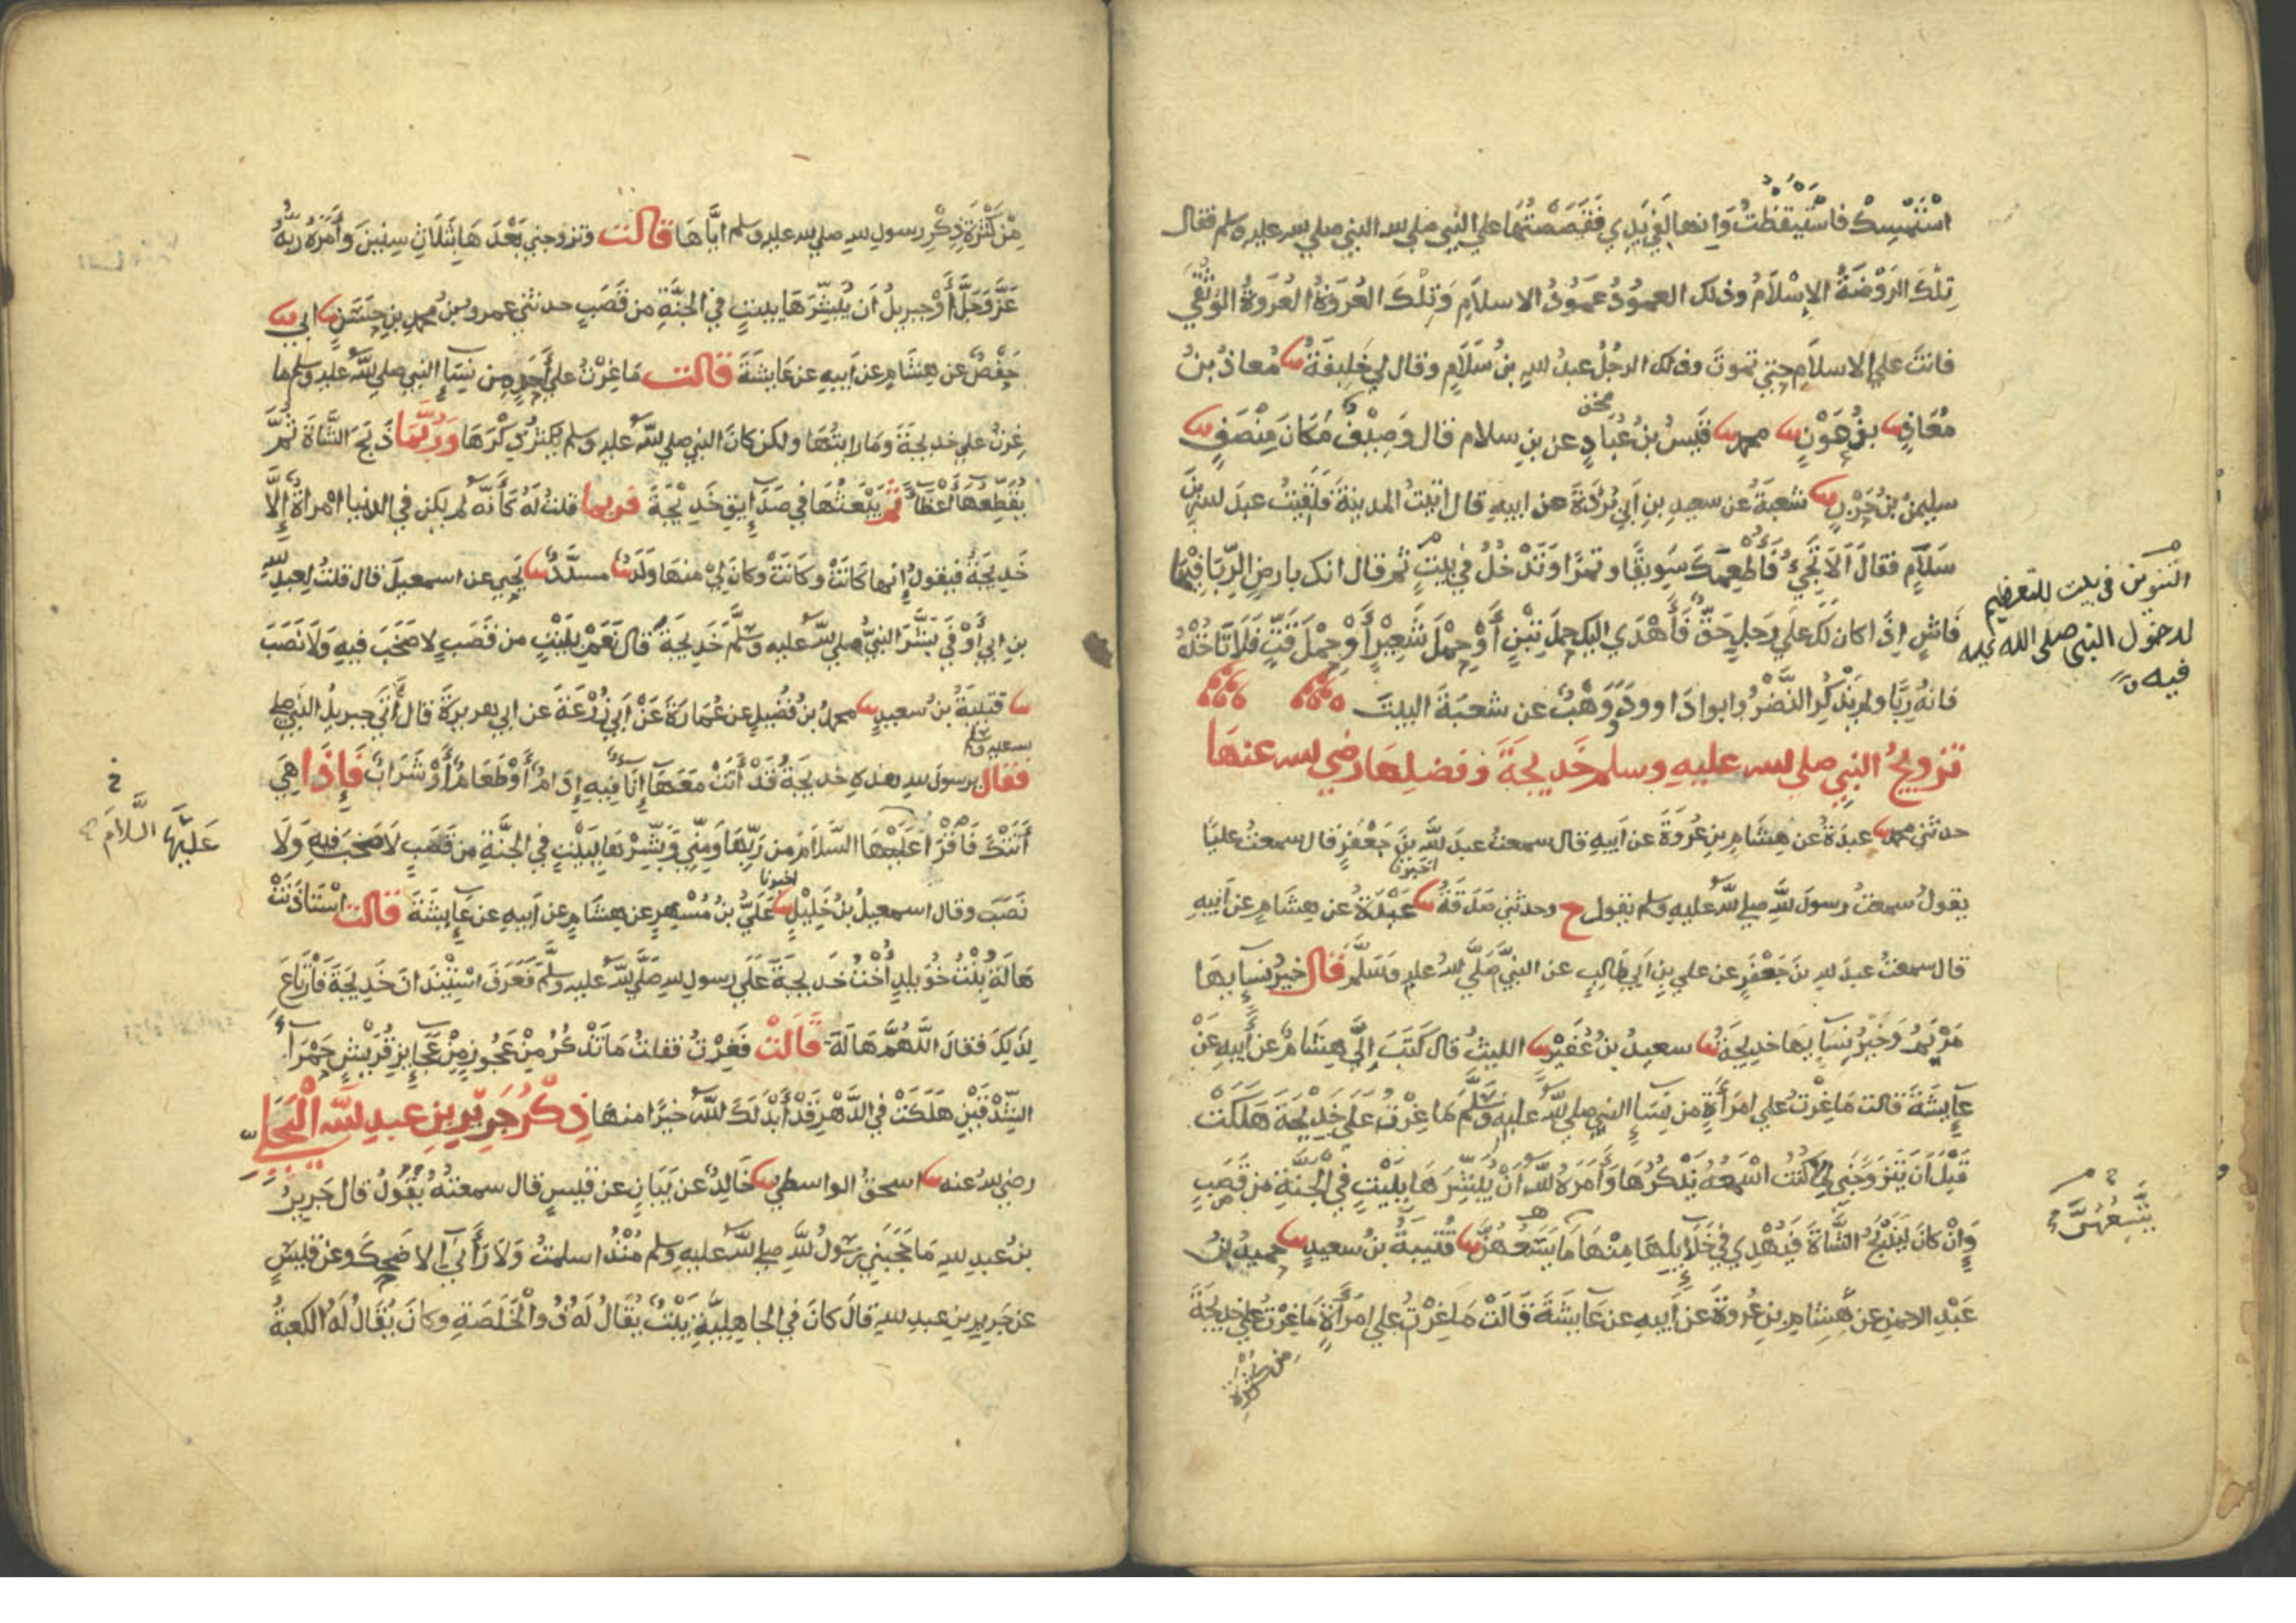 اسْتَمْسِكْ فاسْتَيقظتُ وَانها لَفِي يَدِي فَقَصَصْتُهَا علي النبي صلي لله النبي صلي لله عليه وسلم فقال
تِلْكَ الرَوْضَةُ الإِسْلَامُ وذلك العمُودُ عمُودُ الاسلامِ وَتِلْكَ العُروَةُ العُروَةُ الوُثْقَي
فانتَ علي الاسلامِ حتي تموتَ وذلك الرجلُ عبدُ للهِ بنُ سَلَامٍ وقال لي خَلِيفَةُ ثنا مُعاذُ بنُ
مُعَاذٍ ثنا بنُ عَوْنٍ ثنا محمد ثنا قَيسُ بنُ عُبَادٍ عن بنِ سلام قال وَصِيْفٌ مَكَانَ مِنْصَفٍ ثنا
سليمنُ بنُ حَرْبٍ ثنا شعبَةُ عن سعيدِ بنِ أَبي بُرْدَةَ عن ابيهِ قال اتيتُ المدينةَ فَلَقِيتُ عبدَ للهِ بنَ
سَلَامٍ فقالَ أَلَا تَجِيُ فَأُطْعِمَكَ سَوِيقًا وتمرًا وَتَدْخُلُ في بيتٍ ثم قال انك بارضٍ الرِّبَا فيْهَا
فَاشٍ اِذَا كان لَكَ علي رَجلٍ حَقٌّ فَأَهْدَي اليك حِملَ تِبْنٍ أَوْ حِمْلَ شَعِيْرٍ أَوْ حِمْلَ قَتٍّ فَلَا تَاخُذْهُ
فانهُ رِبًا ولم يَذْكُرِ النَّضْرُ وابوا دَاوودَ وَوَهْبٌ عن شعبَةَ البيتَ
تزويجُ النبي صلي لله عليه وسلم خَديجَةَ وفضلِهَا رضي لله عنهَا
حدثني محمد ثنا عبدَةُ عن هِشَامِ بنِ عُروَةَ عن أَبيهِ قال سمعتُ عبدَ للَّهِ بنَ جَعْفَرٍ قال سمعتُ عليًا
يقولُ سمعتُ رسولَ للَّهِ صلي للَّه عليه وسلم يقول ح وحدثني صَدَقَةُ ثنا عَبْدَةُ عن هِشَامٍ عن أَبيهِ
اخبرنا
قال سمعتُ عبدَ للهِ بنَ جَعْفَرٍ عن علي بنِ ابي طَالِبٍ عن النبيِّ صَلَّي للهُ عليهِ وَسَلَّمَ قال خيرُ نِسَايِهَا
مَرْيَمُ وَخَيْرُ نِسَايِهَا خديجَةُ ثنا سعيدُ بنُ عُفَيْرٍ ثنا الليثُ قال كَتَبَ اِلَيَّ هِشَامٌ عن أَبيهِ عَنْ
عَايِشَةَ قالت مَا غِرْتُ علي امرَأَةٍ من نِسَاءِ النبي صلي للَّه عليه وَسَلَّمَ مَا غِرْتُ عَلَي خَدِيْجَةَ هَلَكَتْ
قَبْلَ أَن يَتَزَوَّجَنِي لِمَا كُنْتُ اسْمَعُهُ يَذْكُرُهَا وَأَمَرَهُ للَّهُ أَنْ يُبَشِّرَهَا بِبَيْتٍ في الْجَنَّةِ مِن قَصَبٍ
وَاِنْ كانَ لَيَذْبَحُ الشَّاةَ فَيُهْدِي في خَلَايِلِهَا مِنْهَا مَا يَسَعُهُنَّ ثنا قُتَيبَةُ بنُ سعيدٍ ثنا حميدُ بنُ
عَبْدِ الرحمنِ عن هِشَامِ بنِ عُروةَ عن أَبيهِ عن عَايشَةَ قَالَتْ مَا غِرْتُ علي امرَأَةٍ مَا غِرْتُ علي خديجةَ
من كثرة
التنوين في بيت للتعظيم
لدخول النبي صلى الله عليه
فيه
مِنْ كَثْرَةِ ذِكْرِ رسولِ للهِ صلي لله عليه وسلم ايَّاهَا قالت وتزوجني بَعْدَهَا بثَلَاثِ سِنِينَ وأَمَرَهُ ربُّهُ
عَزَّ وَجَلَّ أَوْ جبريلُ أَن يُبَشِّرَهَا ببيتٍ في الجنَّةِ من قَصَبٍ حدثني عمرو بنُ محمدِ بنِ حَسَنٍ ثنا ابي ثنا
حَفْصٌ عن هِشَامٍ عن أَبيهِ عن عَايشَةَ قالت مَا غِرْتُ علي أَحَدٍ من نِسَاءِ النبي صلي للَّه عليه وسلم ما
غِرْتُ علي خديجَةَ وَمَا رايتُهَا ولكن كانَ النبي صلي للَّه عليه وسلم يُكثِرُ ذِكْرَهَا وَرُبَّمَا ذَبَحَ الشَّاةَ ثُمَّ
يُقَطِّعُهَا أَعْضَاءً ثُمَّ يَبْعَثُهَا في صَدَايِقِ خَدِيْجَةَ فربما قلتُ لَهُ كَأَنَّه لم يكن في الدنيا امْرأةٌ إِلَّا
خَديجَةُ فيقولُ إِنها كَانَتْ وكَانَتْ وكانَ لِي منهَا وَلَدٌ ثنا مسدَّدٌ ثنا يَحيي عن اسمعيلَ قال قلتُ لِعبدِ للَّهِ
بنِ ابي أَوْفَي بَشَّرَ النبيُّ صلي للَّه عليه وسَلَّمَ خَديجَةَ قال نَعَمْ بِبَيْتٍ من قَصَبٍ لا صَخَبَ فيهِ وَلَا نَصَبَ
ثنا قتيبَةُ بنُ سعيدٍ ثنا محمدُ بنُ فُضَيلٍ عن عُمَارَةَ عَنْ أَبي زُرْعَةَ عن ابي هريرةَ قال أَتَي جبريلُ النبي صلي
لله عليه وسلم
فقال يرسولَ للهِ هذهِ خديجَةُ قَدْ أَتَتْ مَعَهَا إِنَاءٌ فيهِ إِدَامٌ أَوْ طَعَامٌ أَوْ شَرَابٌ فَإِذَا هِيَ
أَتَتْكَ فَاقْرَأْ عَلَيْهَا السَّلَامَ من رَبِّهَا وَمِنِّي وَبَشِّرْهَا بِبَيْتٍ في الجنَّةِ من قَصَبٍ لَا صَخَبَ فيهِ وَلَا
نَصَبَ وقال اسمعيلُ بنُ خَلِيْلٍ ثنا عَلِيُّ بنُ مُسْهِرٍ عن هِشَامٍ عن أَبيهِ عن عَايِشَةَ قالت اسْتَاذَنَتْ
اخبرنا
هَالَةُ بِنْتُ خُوَيلِدٍ أُخْتُ خَديجَةَ عَلَي رسولِ للهِ صَلَّي للَّه عليه وسلَّمَ فَعَرَفَ اسْتِيْذَانَ خَدِيجَةَ فَارْتَاعَ
لِذَلِكَ فقالَ اللَّهُمَّ هَالَةَ قَالَتْ فَغِرْتُ فقلتُ مَا تَذْكُرُ مِنْ عَجُوزٍ مِنْ عَجَايِزِ قُرَيْشٍ حَمْرَاءِ
الشِّدْقَيْنِ هَلَكَتْ في الدَّهْرِ قَدْ أَبْدَلَكَ للَّهُ خيرًا منهَا ذِكْرُ جَرِيْرِ بنِ عبدِ للَّهِ الْبَجَلِي
رضي للهُ عنه ثنا اسحقُ الواسطي ثنا خَالِدٌ عن بَيَانٍ عن قَيسٍ قال سمعتُهُ يَقُولُ قال جَرِيرُ
بنُ عبدِ للهِ مَا حَجَبَنِي رسُولُ للَّهِ صلي للَّه عليه وسلم مُنْذُ اسلمتُ وَلَا رَأَنِي الا ضَحِكَ وعن قيسٍ
عن جَرِيرِ بنِ عبدِ للهِ قالَ كانَ في الجاهِلِيَّةِ بَيْتٌ يُقَالُ لَهُ ذُو الْخَلَصَةِ وكانَ يُقَالُ لَهُ الكعبةُ
خ
عَلَيْهَا السَّلَامَ